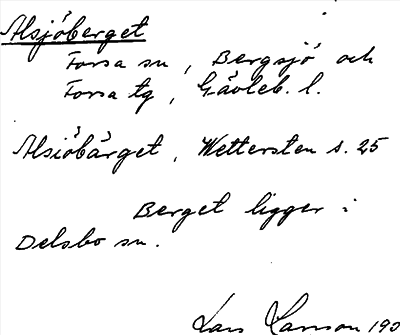 Alsjöberget
Forsa sn, Bergsjö och
Forsa tg, Gävleb. l.
Alsiöbärget, Wettersten s. 25
Berget ligger i
Delsbo sn.
Lars Larsson 190